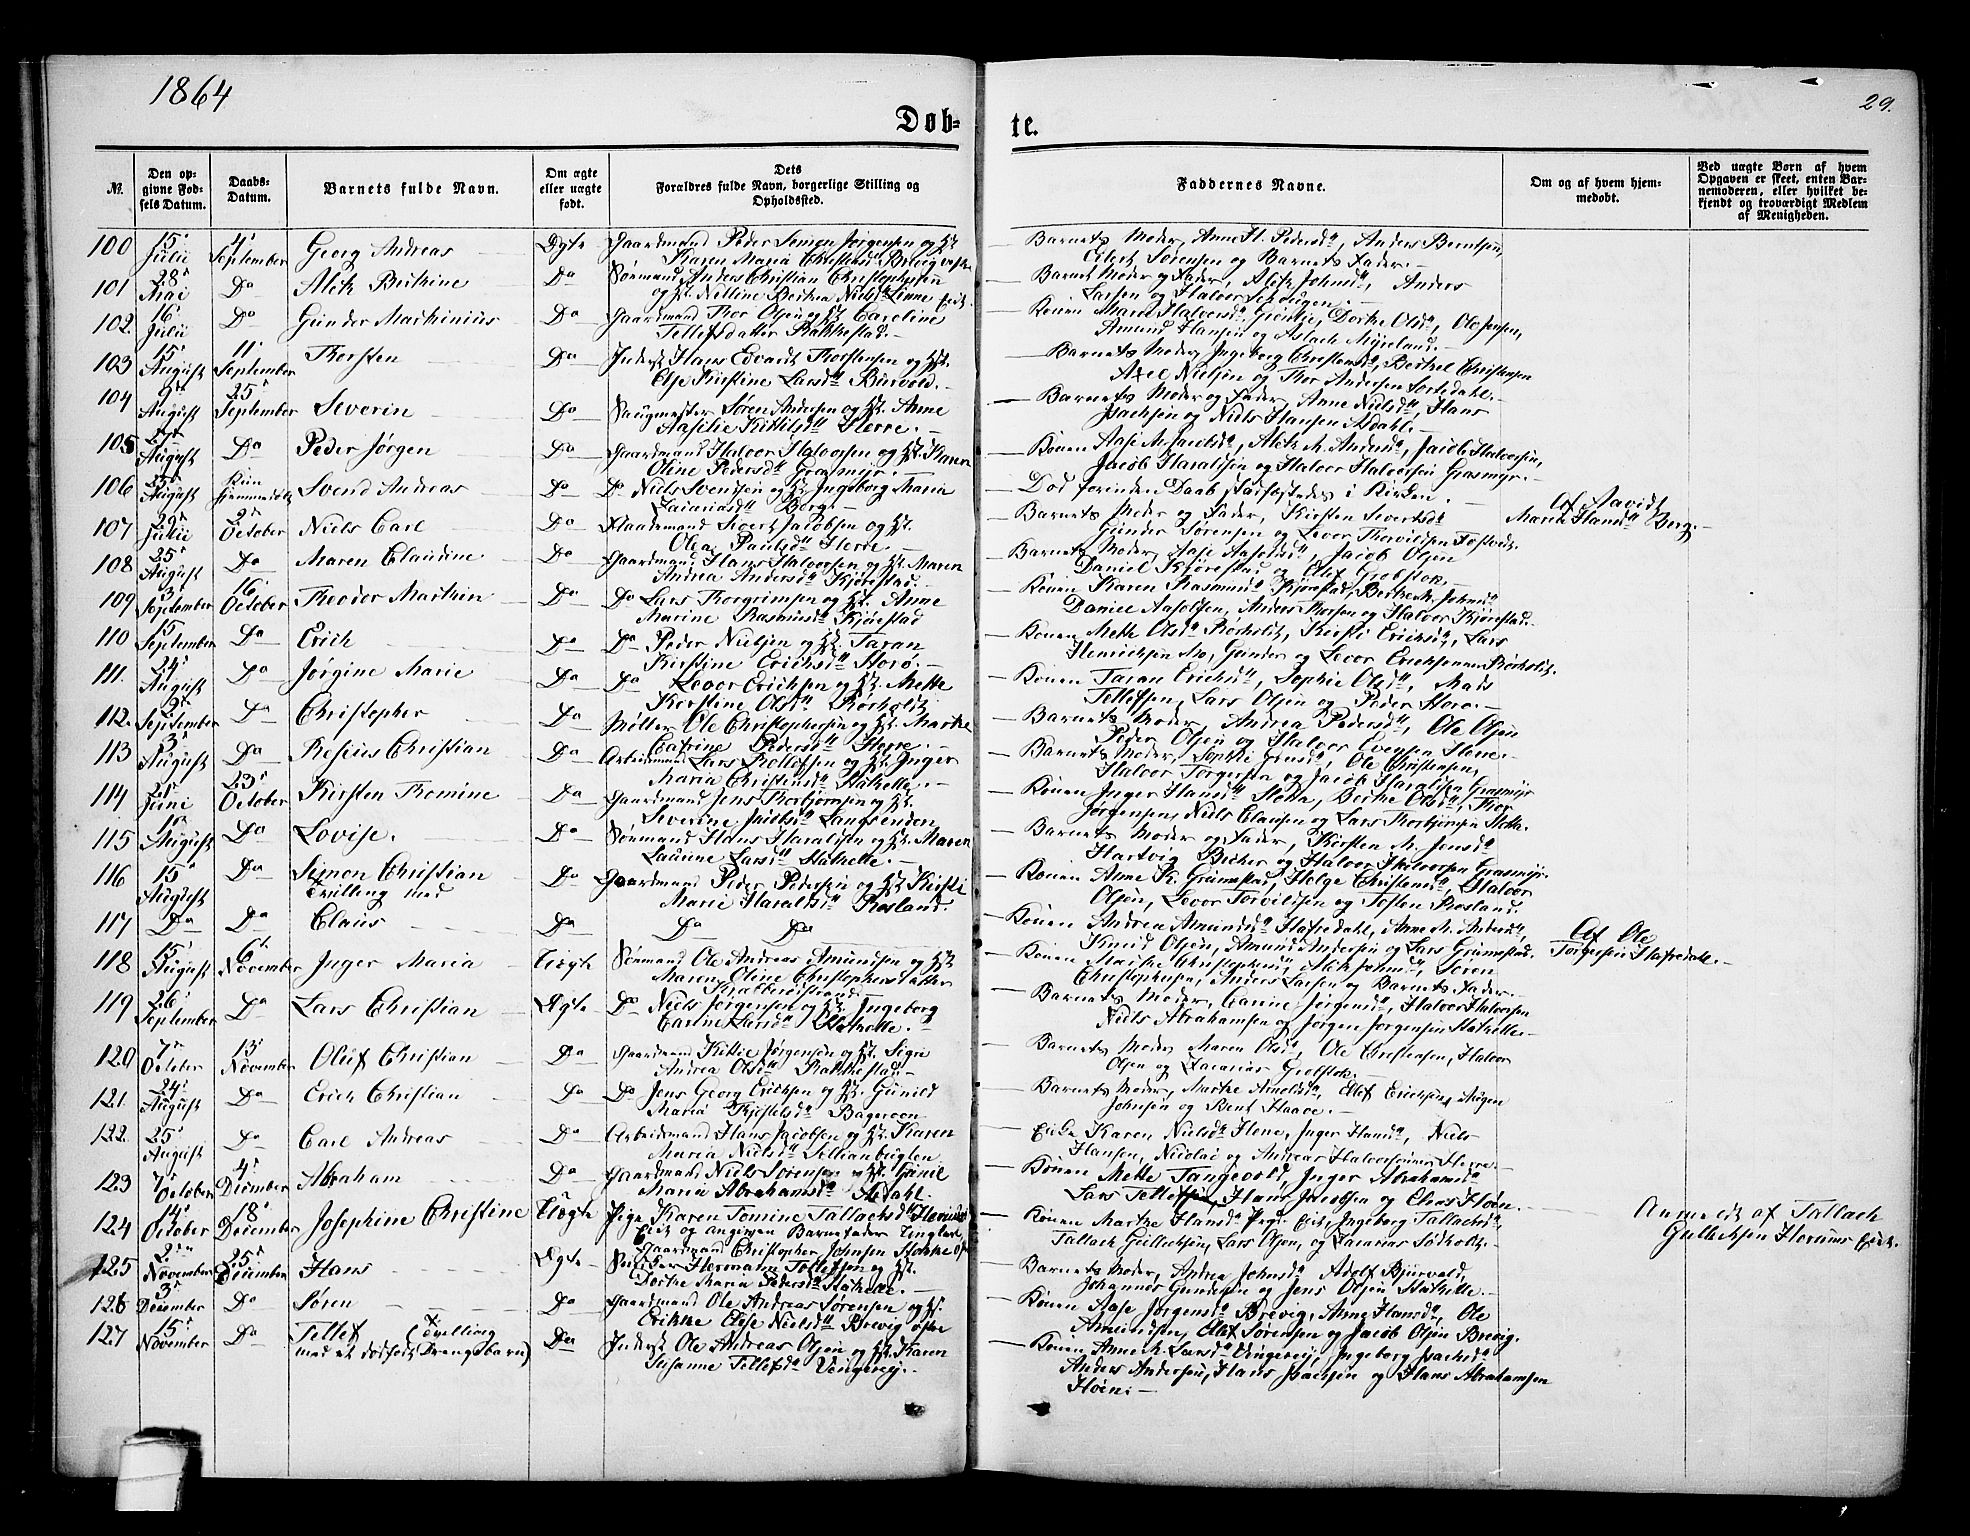 1864
29.
Døb-
te.
№.
Den op-
givne Fød-
sels Datum.
Daabs-
Datum.
Barnets fulde Navn.
Om ægte
eller uægte
født.
Dets
Forældres fulde Navn, borgerlige Stilling og
Opholdssted.
Faddernes Navne.
Om og af hvem hjem-
medøbt.
Ved uægte Børn af hvem
Opgaven er skeet, enten Bar-
nemoderen, eller hvilket be-
kjendt og troværdigt Medlem
af Menigheden.
100 15 Juli 4 September Georg Andreas Ægte Gaardmand Peder Simon Jørgensen og
Karen Maria
Barnets Moder, Anne H. Pedersd, Anders Berntsen,
Eilert Sørensen og Barnets Fader.
101 28 Mai Do Do Sømand Anders Christian Christophersen
Barnets Moder og Fader, Johnsd, Anders
Larsen og Halvor
102 16 Juli Do Gunder Mathinius Do Gaardmand Thor Olsen og Caroline
Tellefsdatter Rakkestad.
Konen Maren Halvorsd, Dorthe Olsd, Ole Jensen,
Amund Hansen og Aslack
103 15 August 11 September Thorsten Do Inderst Hans Edvardt Thorstensen og
Else Kirstine Larsd
Barnets Moder, Ingeborg Christensd, Berthel Christensen
Axel Nielsen og Thor Andersen
104 9 August 25 September Severin Do Søren Andersen og Anne
Kittilsd Herre.
Barnets Moder og Fader, Anne Nielsd, Hans
Isachsen og Niels Hansen Asdahl.
105 27 August Do Peder Jørgen Do Gaardmand Halvor Halvorsen og Karen
Oline Pedersd Grasmyr.
Konen Aase M. Jacobsd, Andersd, Jacob Halvorsen,
Jacob Haraldsen og Halvor Halvorsen Grasmyr.
106 25 August Kun hjemmedøbt Svend Andreas Do Do Niels Svendsen og Ingeborg Maria
Zachariasd Berg.
Død forinden Daab stadfæstedes i Kirken.
Af
Maren Hansd Berg.
107 29 Juli 2 October Niels Carl Do Gaardmand Sivert Jacobsen og
Olea Paulsd Herre
Barnets Moder og Fader, Kirsten Sivertsd
Gunder Sørensen og Levor
108 25 August Do Maren Claudine Do Gaardmand Hans Halvorsen og Maren
Andrea Andersd Kjørestad.
Barnets Moder, Aase Jacob Olsen
Daniel Kjørestad og Ellef
109 3 September 16 October Theodor Mathin Do Do Lars Thorgrimsen og Anne
Marine Rasmusd Kjørestad
Konen Karen Rasmusd Kjørestad, Berthe M. Johnsd
Daniel Anders Thorsen og Halvor Kjørestad.
110 15 September Do Erich Do Do Peder Nielsen og Taran
Kirstine Erichsd Horø.
Konen Mette Olsd Rørholdt, Kirsti Erichsd, Lars
Henrichsen Mo, Gunder og Levor Erichsen Rørholdt.
111. 24 August Do Jørgine Marie Do Do Levor Erichsen og Mette
Kirstine Olsd Rørholdt
Konen Taran Erichsd, Sophie Olsd, Mads
Tellefsen, Lars Olsen og Peder Horø.
112. September Do Christopher Do Møller Ole Christophersen og Marthe
Catrine Pedersd Herre.
Barnets Moder, Andrea Pedersd, Ole Olsen
Peder Olsen og Halvor Evensen
113 3 August Do Christian Do Arbeidsmand Lars Rolfsen og Inger
Maria Christensd Stathelle.
Barnets Moder, Sophie Ole Christensen,
Halvor Torgersen og Jacob Haraldsen Grasmyr
114 21 Juni 23 October Kirsten Tomine Do Gaardmand Jens Thorbjørnsen og
Severine Langsenden
Konen Inger Hansd Stokke, Berthe Olsd, Thor
Jørgensen, Niels Clausen og Lars Thorbjørnsen Stokke.
115 15 August Do Lovise. Do Sømand Hans Haraldsen og Maren
Laurine Larsd Stathelle.
Barnets Moder og Fader, Kirsten M. Jensd
Hartvig Becker og Halvor Halvorsen Grasmyr
116 15 August Do Simon Christian
Tvilling med
Do Gaardmand Peder Pedersen og Kirsti
Marie Haraldsd Rosland.
Konen Anne K. Grumestad, Helge Christensd, Halvor
Olsen, Levor Torvildsen og Tosten Rosland.
117 Do Do Claus Do Do Do
Konen Andrea Amundsd Hafredahl, Anne M. Andersd,
Knud Olsen, Amund Andersen og Lars Grumestad.
Af Ole
Torgersen Hafredahl.
118 15 August 6 November Inger Maria Uægte Sømand Ole Andreas Amundsen og
Maren Oline Christophersdatter
Krabberødstrand
Konen Marthe Christophersd, Johnsd, Søren
Christophersen, Anders Larsen og Barnets Fader.
119 26 September Do Lars Christian Ægte Do Niels Jørgensen og Ingeborg
Carine Larsd Stathelle.
Barnets Moder, Carine Jørgensd, Halvor Halvorsen
Niels Abrahamsen og Jørgen Jørgensen Stathelle.
120 7 October 13 November Oluf Christian Do Gaardmand Kittil Jørgensen og Sigri
Andrea Olsd Rakkestad.
Barnets Moder Maren Olsd, Ole Christensen, Halvor
Olsen og Zacarias
121. 24 August Do Erich Christian Do Do Jens Georg Erichsen og Gunild
Maria Kjostelsd
Barnets Moder, Marthe Arnoldsd, Ellef Erichsen,
Johnsen og Bent Haave.
122. 25 August Do Carl Andreas Do Arbeidsmand Hans Jacobsen og Karen
Maria Nielsd
Enke Karen Nielsd Inger Hansd, Niels
Hansen, Nicolai og Andreas Halvorsen Herre
123 7 October 4 December Abraham Do Gaardmand Niels Sørensen og
Maria Abrahamsd Asdahl.
Konen Mette Tangevold, Inger Abrahamsd
Lars Tellefsen, Hans Jacobsen og Claus Høen.
124 14 October 18 December Josephine Christine Uægte Pige Karen Tomine Tallachsd
Eide og angiven Barnefader Ungkarl
Gaardmand Christopher Johnsen Stokke
Konen Marthe Hansd Ingeborg Tallachsd,
Tallack Gulliksen, Lars Olsen, og Zacarias
Anmeldt af Tallack
Gulliksen Eide.
125 2 November 25 December Hans Ægte Hermann Tellefsen og
Dorthe Maria Pedersd Stathelle.
Barnets Moder, Andrea Johnsd, Adolf Bjørvald,
Johannes Gundersen og Jens Olsen Stathelle.
126 3 December Do Søren Do Gaardmand Ole Andreas Sørensen og
Erikke Olese Nielsd Brevig
Konen Aase Jørgensd Brevig, Anne Hansd, Ole
Amundsen, Ellef Sørensen og Jacob Olsen Brevig.
127 15 November Do Tellef (Tvilling
med et dødfødt Drengebarn)
Do Inderst Ole Andreas Olsen og Karen
Susanne Tellefsd
Konen Anne K. Larsd Ingeborg Isachsd
Anders Andersen, Hans Isachsen og Hans Abrahamsen
Høen.